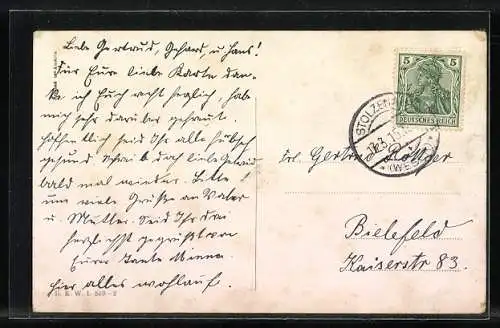 Liebe Gertrud, Gehard, u Hans!
Für Eure liebe Karte dan-
ke ich Euch recht herzlich, habe
mich sehr darüber gefreut.
Hoffentlich seid Ihr alle hübsch
gesund. Schreib doch liebe Gertrud
bald mal wieder. Bitte!
um viele Grüße an Vater
u. Mutter. Seid Ihr drei
herzlichst gegrüßt von
Eurer Tante Minna.
hier alles wohlauf.
W. L. 509-2
5 5
DEUTSCHES REICH
STOLZENAU
(WESER)
Gertrud
Bielefeld
Kaiserstr 83.